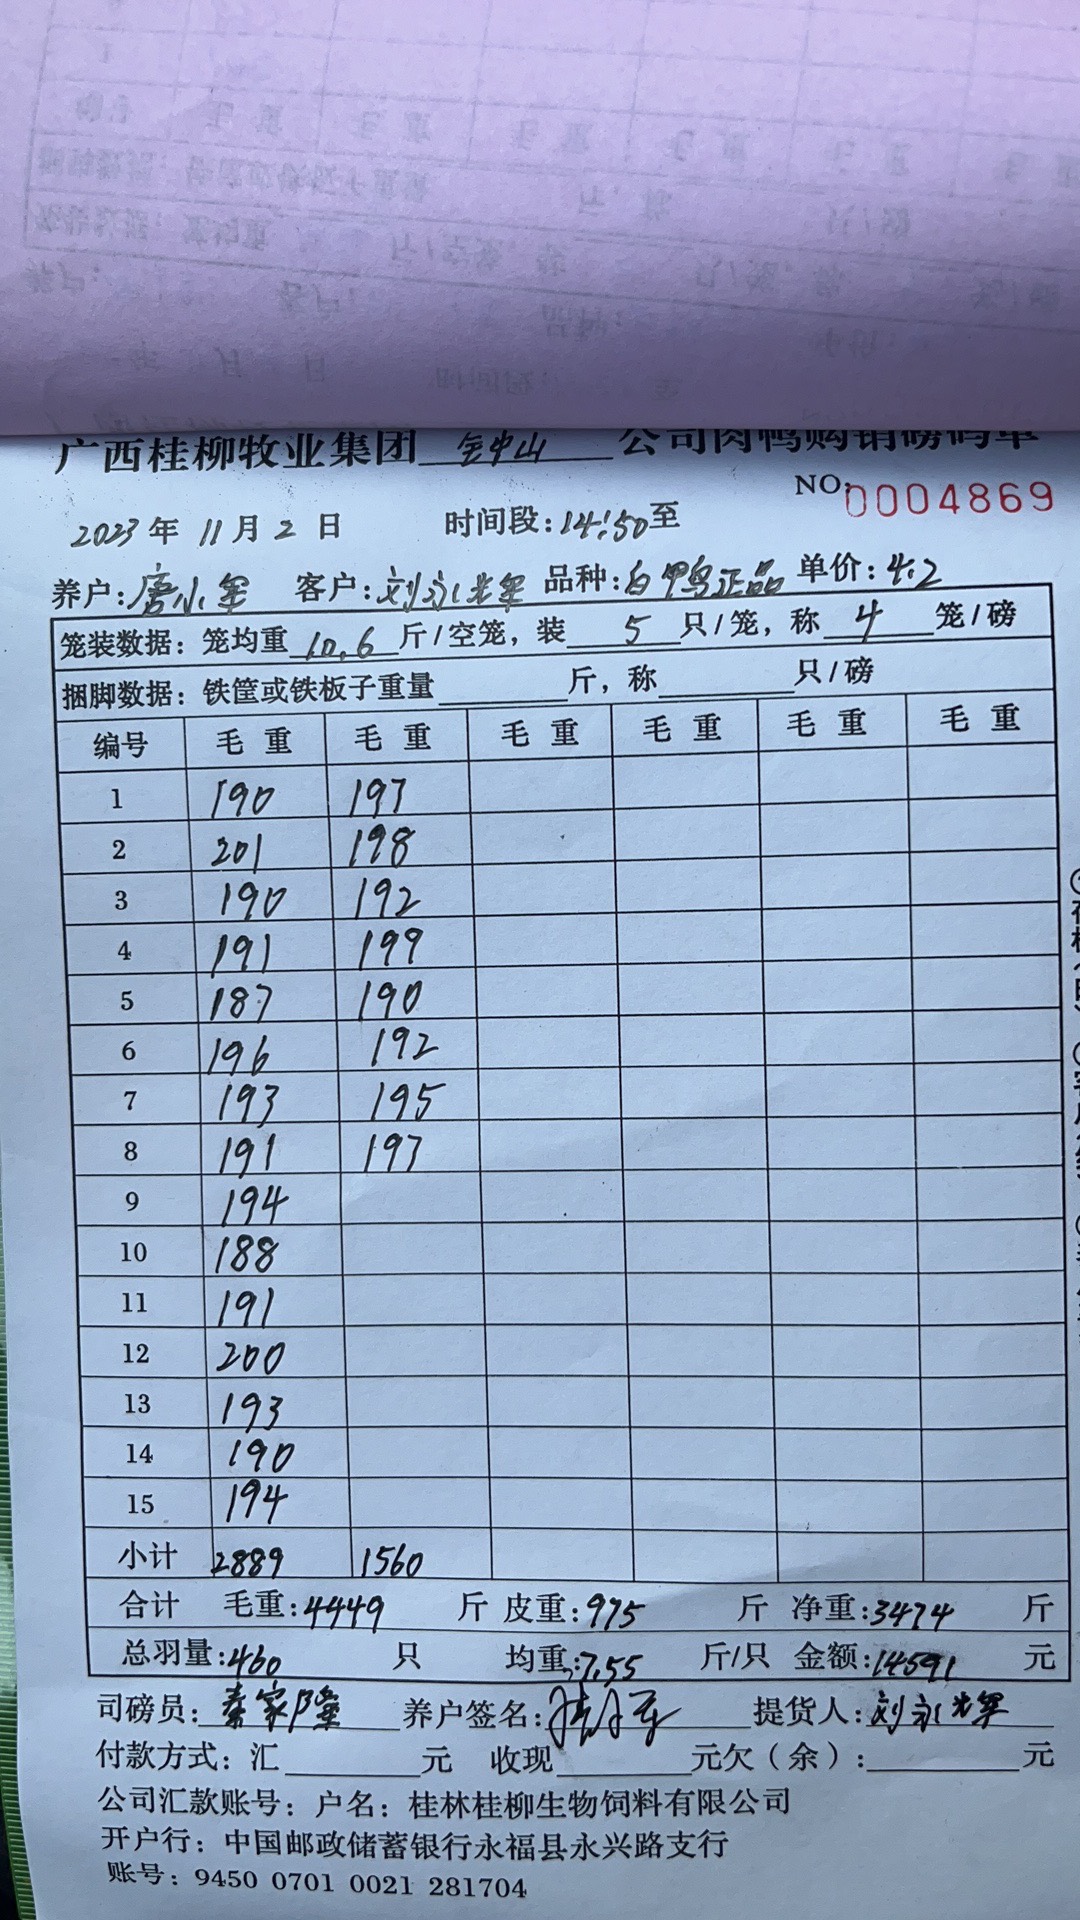 广西桂柳牧业集团 公司肉鸭购销磅码单
NO:0004869
2023年11月2日 时间段:14:50至
养户:唐小军 客户:刘永光军 品种:白鸭正品 单价:4.2
笼装数据:笼均重10.6斤/空笼,装5只/笼,称4笼/磅
捆脚数据:铁筐或铁板子重量 斤,称 只/磅
编号 毛重 毛重 毛重 毛重 毛重 毛重
1 190 197
2 201 198
3 190 192
4 191 199
5 187 190
6 196 192
7 193 195
8 191 197
9 194
10 188
11 191
12 200
13 193
14 190
15 194
小计 2889 1560
合计 毛重:4449 斤 皮重:975 斤 净重:3474 斤
总羽量:460 只 均重:7.55 斤/只 金额:14591 元
司磅员:秦家隆 养户签名: 提货人:刘永光军
付款方式:汇 元 收现 元欠(余): 元
公司汇款账号:户名:桂林桂柳生物饲料有限公司
开户行:中国邮政储蓄银行永福县永兴路支行
账号:9450 0701 0021 281704